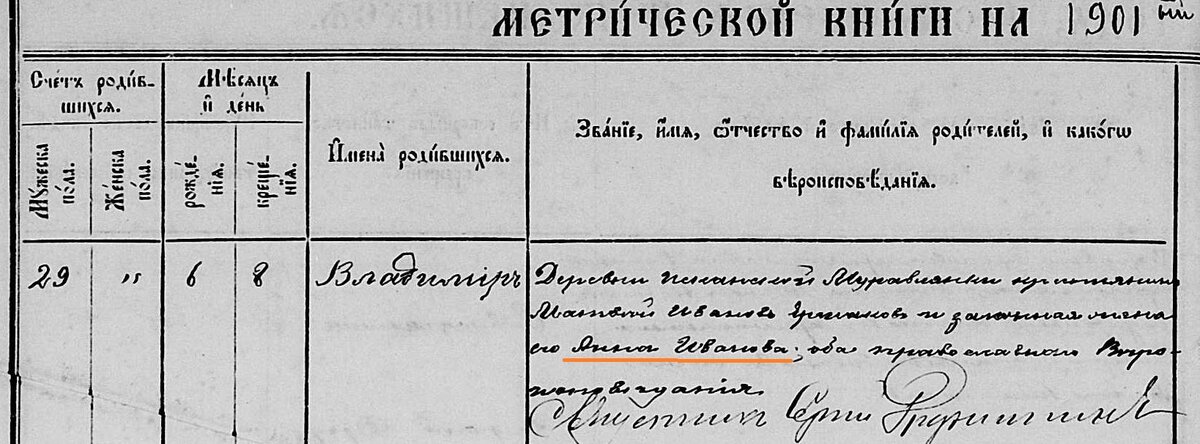 МЕТРИ́ЧЕСКОЙ КНИ́ГИ НА 1901ый
Счéтъ роди́в-
шихся.
Мѣсяцъ
и҆ дéнь
И҆менà роди́вшихся.
Звáнїе, и҆́мя, ѻ҆́тчество и҆ фами́лїя роди́телей, и҆ какóгѡ
вѣроисповѣ́данїя.
Мꙋ́жеска
пóла.
Жéнска
пóла.
рождé-
нїя.
крещé-
нїя.
29 " 6 8 Владимiръ
Деревни Муравлянки крестьянинъ
Иванов Ермаковъ и законная жена
его Анна Иванова; оба православнаго Вѣро-
исповѣданiя